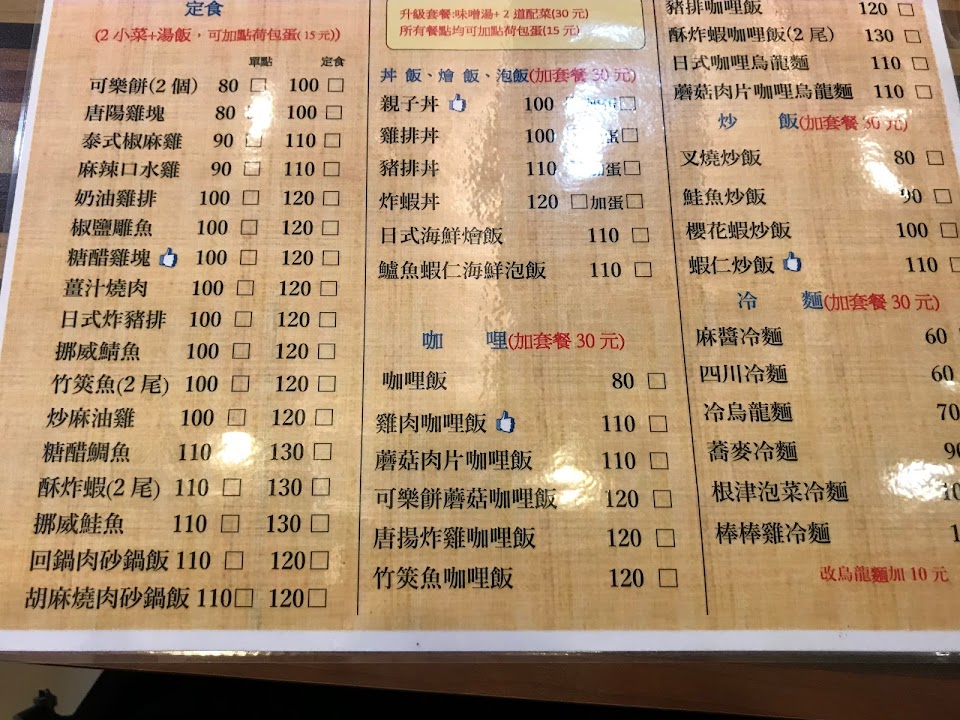 定食
(2 小菜+湯飯，可加點荷包蛋(15元))
單點 定食
可樂餅(2 個) 80 □ 100 □
唐陽雞塊 80 □ 100 □
泰式椒麻雞 90 □ 110 □
麻辣口水雞 90 □ 110 □
奶油雞排 100 □ 120 □
椒鹽雕魚 100 □ 120 □
糖醋雞塊 100 □ 120 □
薑汁燒肉 100 □ 120 □
日式炸豬排 100 □ 120 □
挪威鯖魚 100 □ 120 □
竹筴魚(2 尾) 100 □ 120 □
炒麻油雞 100 □ 120 □
糖醋鯛魚 110 □ 130 □
酥炸蝦(2 尾) 110 □ 130 □
挪威鮭魚 110 □ 130 □
回鍋肉砂鍋飯 110 □ 120 □
胡麻燒肉砂鍋飯 110 □ 120 □
升級套餐:味噌湯+ 2 道配菜(30 元)
所有餐點均可加點荷包蛋(15 元)
丼 飯、燴 飯、泡飯(加套餐 30 元)
親子丼 100 □
雞排丼 100 蛋□
豬排丼 110 加蛋□
炸蝦丼 120 □加蛋□
日式海鮮燴飯 110 □
鱸魚蝦仁海鮮泡飯 110 □
咖 哩(加套餐 30 元)
咖哩飯 80 □
雞肉咖哩飯 110 □
蘑菇肉片咖哩飯 110 □
可樂餅蘑菇咖哩飯 120 □
唐揚炸雞咖哩飯 120 □
竹筴魚咖哩飯 120 □
豬排咖哩飯 120 □
酥炸蝦咖哩飯(2 尾) 130 □
日式咖哩烏龍麵 110 □
蘑菇肉片咖哩烏龍麵 110 □
炒 飯(加套餐 30 元)
叉燒炒飯 80 □
鮭魚炒飯 90 □
櫻花蝦炒飯 100 □
蝦仁炒飯 110 □
冷 麵(加套餐 30 元)
麻醬冷麵 60
四川冷麵 60
冷烏龍麵 70
蕎麥冷麵
根津泡菜冷麵
棒棒雞冷麵
改烏龍麵加 10 元